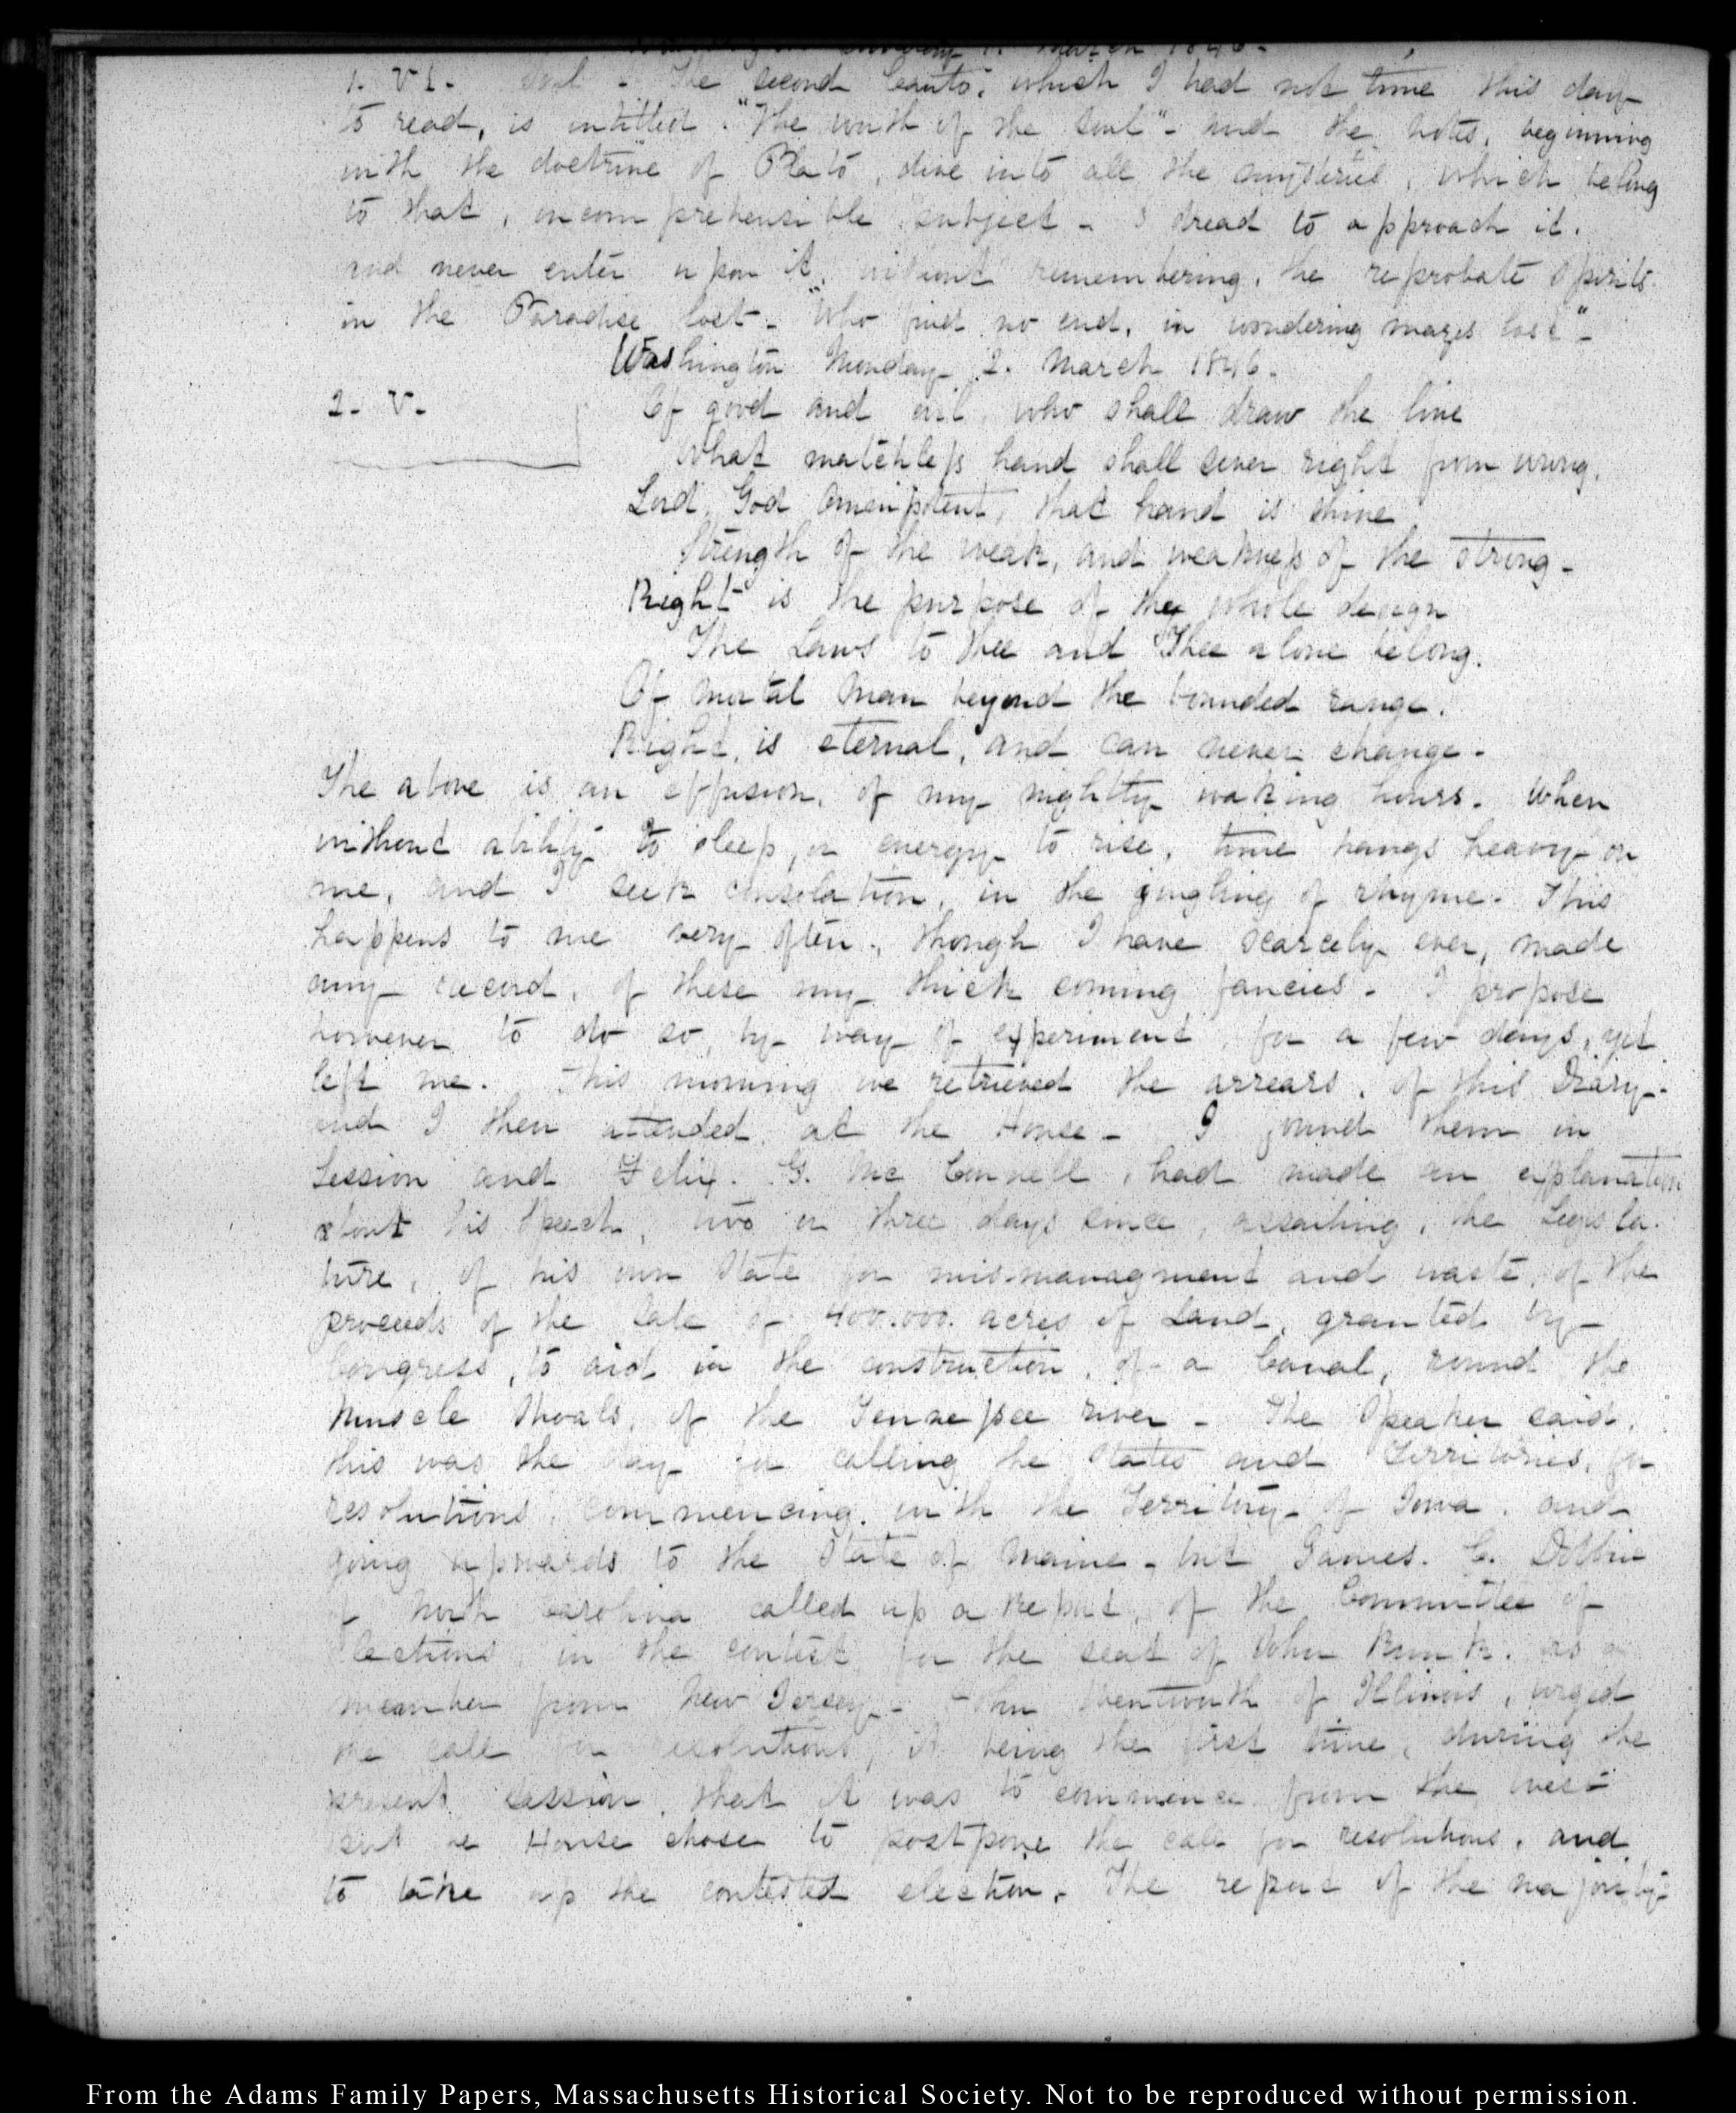 March 1846-
1. VI. Soul - The second Canto, which I had not time this day
to read, is intitled. "The worth of the Soul"- and the notes, beginning
with the doctrine of Plato, dive into all the mysteries, which belong
to that, incomprehensible subject - I dread to approach it.
and never enter upon it, without remembering, the reprobate spirits
in the Paradise lost - "Who find no end, in wondering mazes lost"-
Washington Monday 2. March 1846.
2. V. Of good and evil, who shall draw the line
What matchless hand shall sever right from wrong.
Lord, God Omnipotent, that hand is thine
Strength of the weak, and weakness of the strong-
Right is the purpose of the whole design
The Laws to thee and Thee alone belong.
Of mortal Man beyond the bounded range.
Right, is eternal, and can never change-
The above is an effusion, of my nightly waking hours. When
without ability to sleep, or energy to rise, time hangs heavy on
me, and I seek consolation, in the gingling of rhyme. This
happens to me very often, though I have scarcely ever, made
any record, of these my thick coming fancies - I propose
however to do so, by way of experiment, for a few days, yet
left me. This morning we retrieved the arrears, of this Diary-
and I then attended at the House- I found them in
Session and Felix. G. Mc Connell, had made an explanation
about his Speech, two or three days since, assailing, the Legisla-
ture, of his own State for mismanagment and waste, of the
proceeds of the Sale of 400.000. acres of Land, granted by
Congress, to aid in the construction, of a Canal, round the
Muscle Shoals, of the Tennessee river - The Speaker said,
this was the day for calling the States and Territories, for
resolutions, commencing, with the Territory of Iowa, and
going upwards to the State of Maine - but James. C. Dobbin
of North Carolina called up a Report, of the Committee of
Elections, in the contest, for the seat of John Runk. as a
member from New Jersey - John Wentworth of Illinois, urged
the call for resolutions, it being the first time, during the
present session, that it was to commence from the west
but the House chose to postpone the call for resolutions, and
to take up the contested election. The report of the majority-
From the Adams Family Papers, Massachusetts Historical Society. Not to be reproduced without permission.